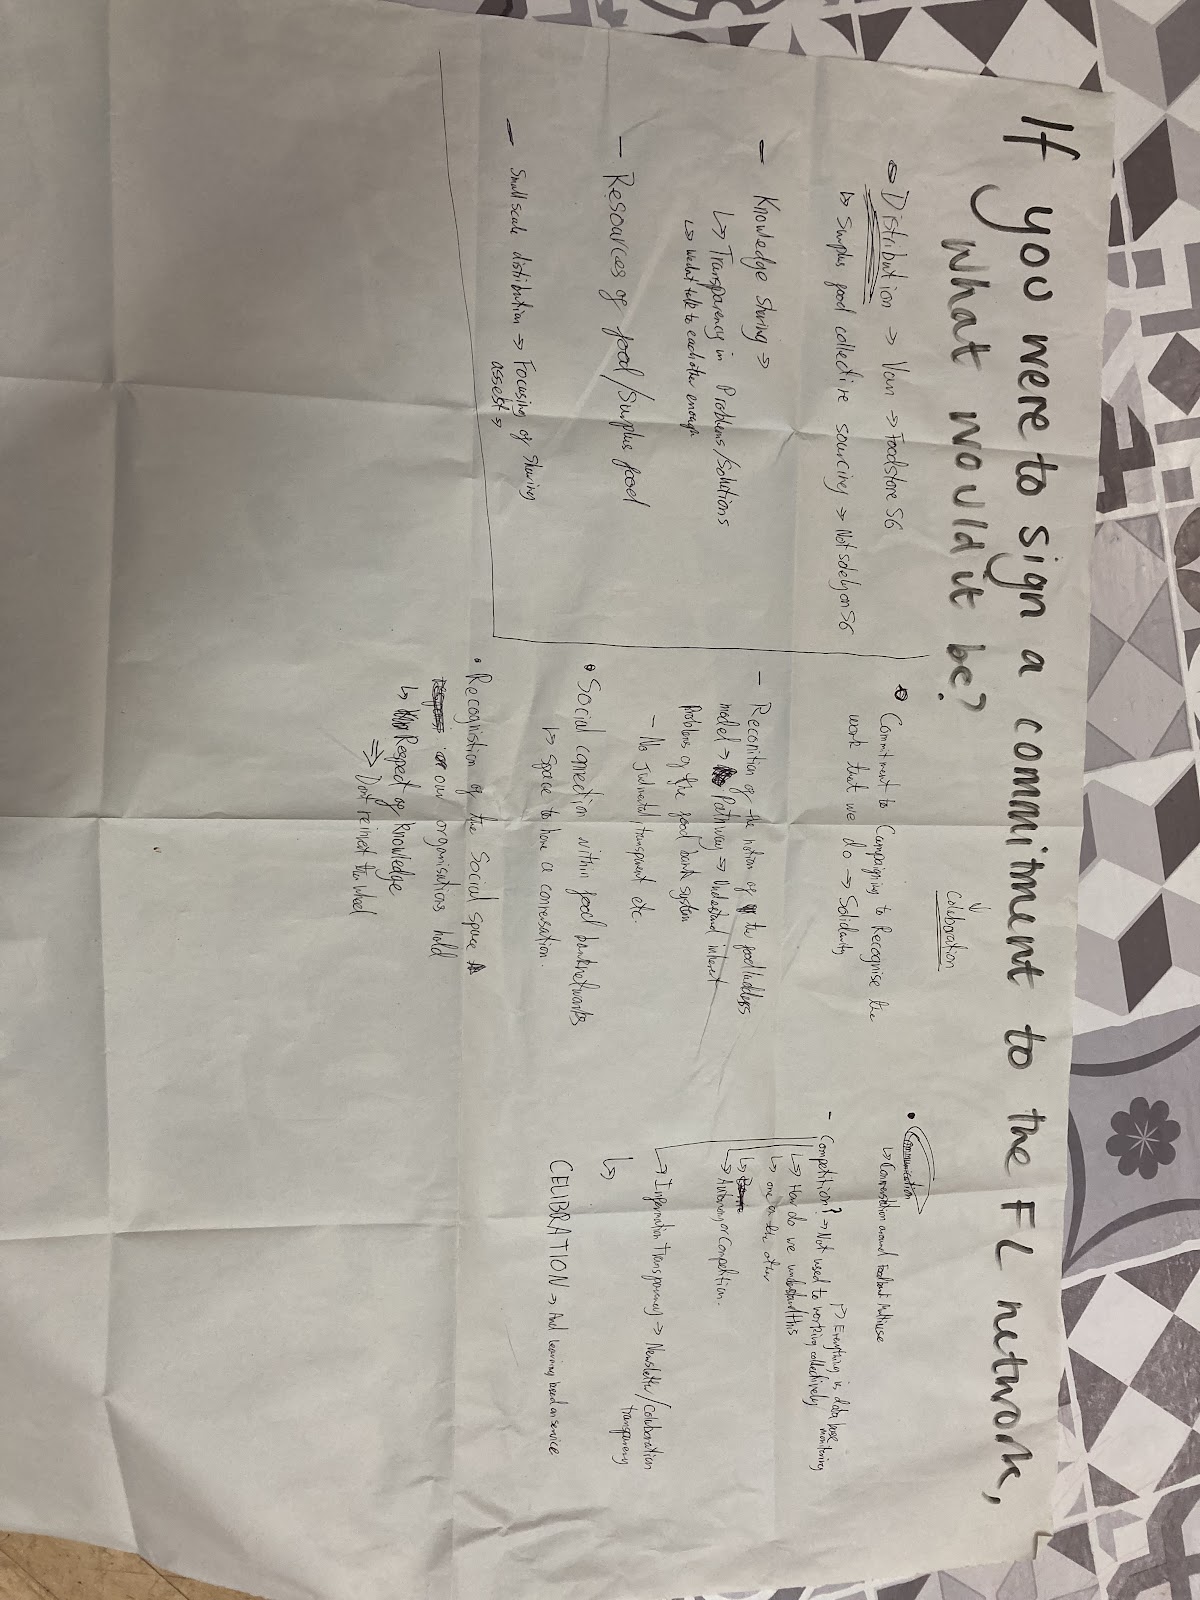 If you were to sign a commitment to the FL network,
What would it be?
Distribution → Van → Foodstore S6
↳ Surplus food collective sourcing → Not solely on S6
- Knowledge sharing →
↳ Transparency in Problems/Solutions
↳ We dont talk to each other enough
- Resources of food/Surplus food
- Small scale distribution → Focusing of sharing
assest →
↓
Colaboration
Commitment to Campaigning to Recognise the
work that we do → Solidarity
- Reconition of the notion of the food ladders
model → Pathway → Understand inheret
problems of the food bank system
- No Judmental, transparent etc.
• Social conection within food bank networks
↳ Space to have a conversation.
• Recognistion of the Social space
our organisations hold
↳ Respect of knowledge
⇒ Dont reinvet the wheel
• Communication
↳ Conversation around Foodbank
↳ Everything is data base
monitoring
- Competition? → Not used to working collectively
↳ How do we understand this
↳ one the other
↳ Autonomy or Competition.
↳ Information transparency → Newsletter/Colaboration
transparency
↳
CELIBRATION → And learning based on service